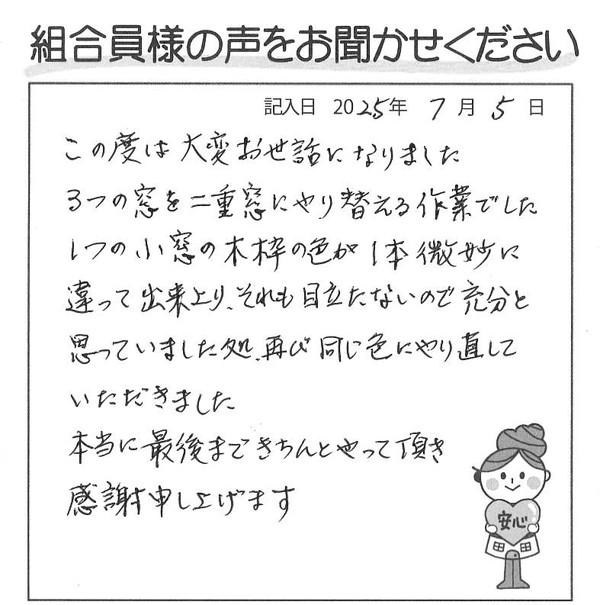 組合員様の声をお聞かせください
記入日 2025年 7月 5日
この度は大変お世話になりました
3つの窓を二重窓にやり替える作業でした
1つの小窓の木枠の色が1本微妙に
違って出来上り、それも目立たないので充分と
思っていました処、再び同じ色にやり直して
いただきました
本当に最後まできちんとやって頂き
感謝申し上げます
安心